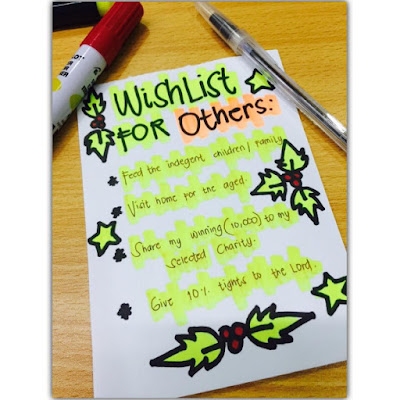 WishList
FOR Others:
Feed the indegent children/ family
Visit home for the aged.
Share my winning (10,000) to my
selected Charity.
Give 90% tights to the Lord.